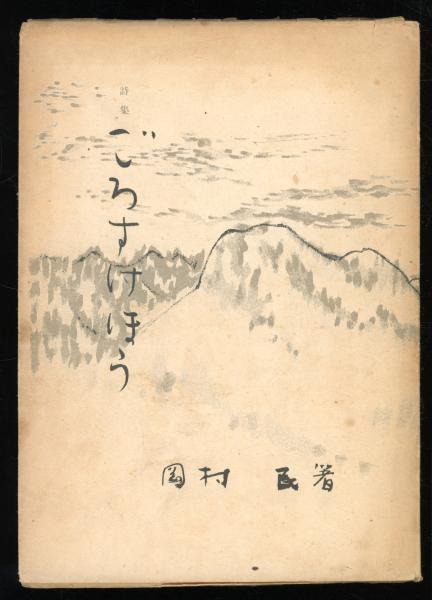 詩集
ごろすけほう
岡村 民著